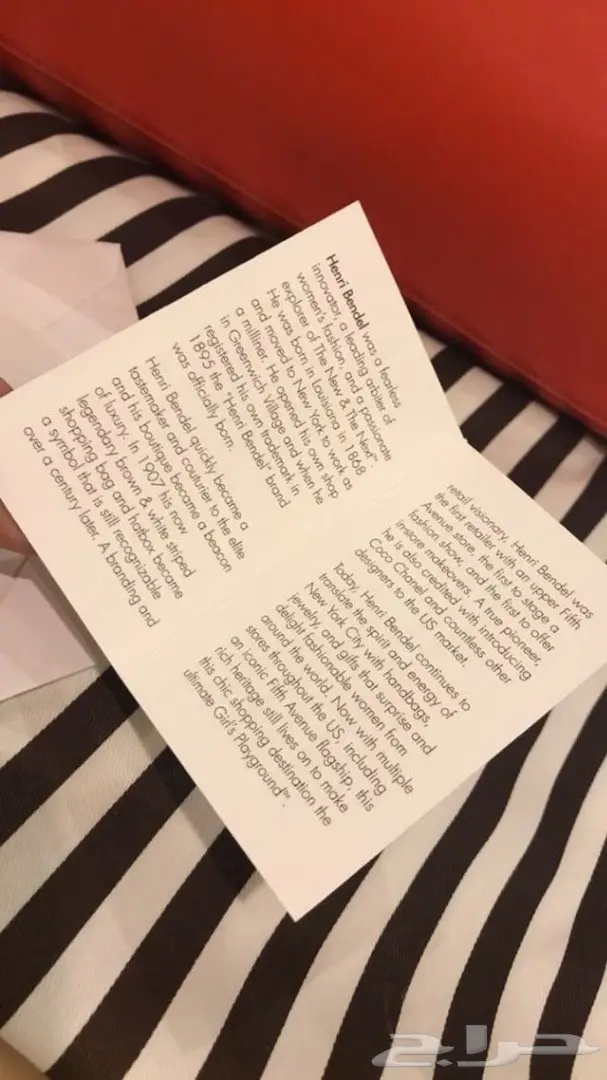 Henri Bendel was a fearless
innovator, a leading arbiter of
women's fashion, and a passionate
explorer of "The New & The Next".
He was born in Louisiana in 1868
and moved to New York to work as
a milliner. He opened his own shop
in Greenwich Village and when he
registered his own trademark in
1895 the "Henri Bendel" brand
was officially born.
Henri Bendel quickly became a
tastemaker and couturier to the elite
and his boutique became a beacon
of luxury. In 1907 his now
legendary brown & white striped
shopping bag and hatbox became
a symbol that is still recognizable
over a century later. A branding and
retail visionary, Henri Bendel was
the first retailer with an upper Fifth
Avenue store, the first to stage a
fashion show, and the first to offer
in-store makeovers. A true pioneer,
he is also credited with introducing
Coco Chanel and countless other
designers to the US market.
Today, Henri Bendel continues to
translate the spirit and energy of
New York City with handbags,
jewelry, and gifts that surprise and
delight fashionable women from
around the world. Now with multiple
stores throughout the US, including
an iconic Fifth Avenue flagship, this
rich heritage still lives on to make
this chic shopping destination the
ultimate Girl's Playground™.
حراج